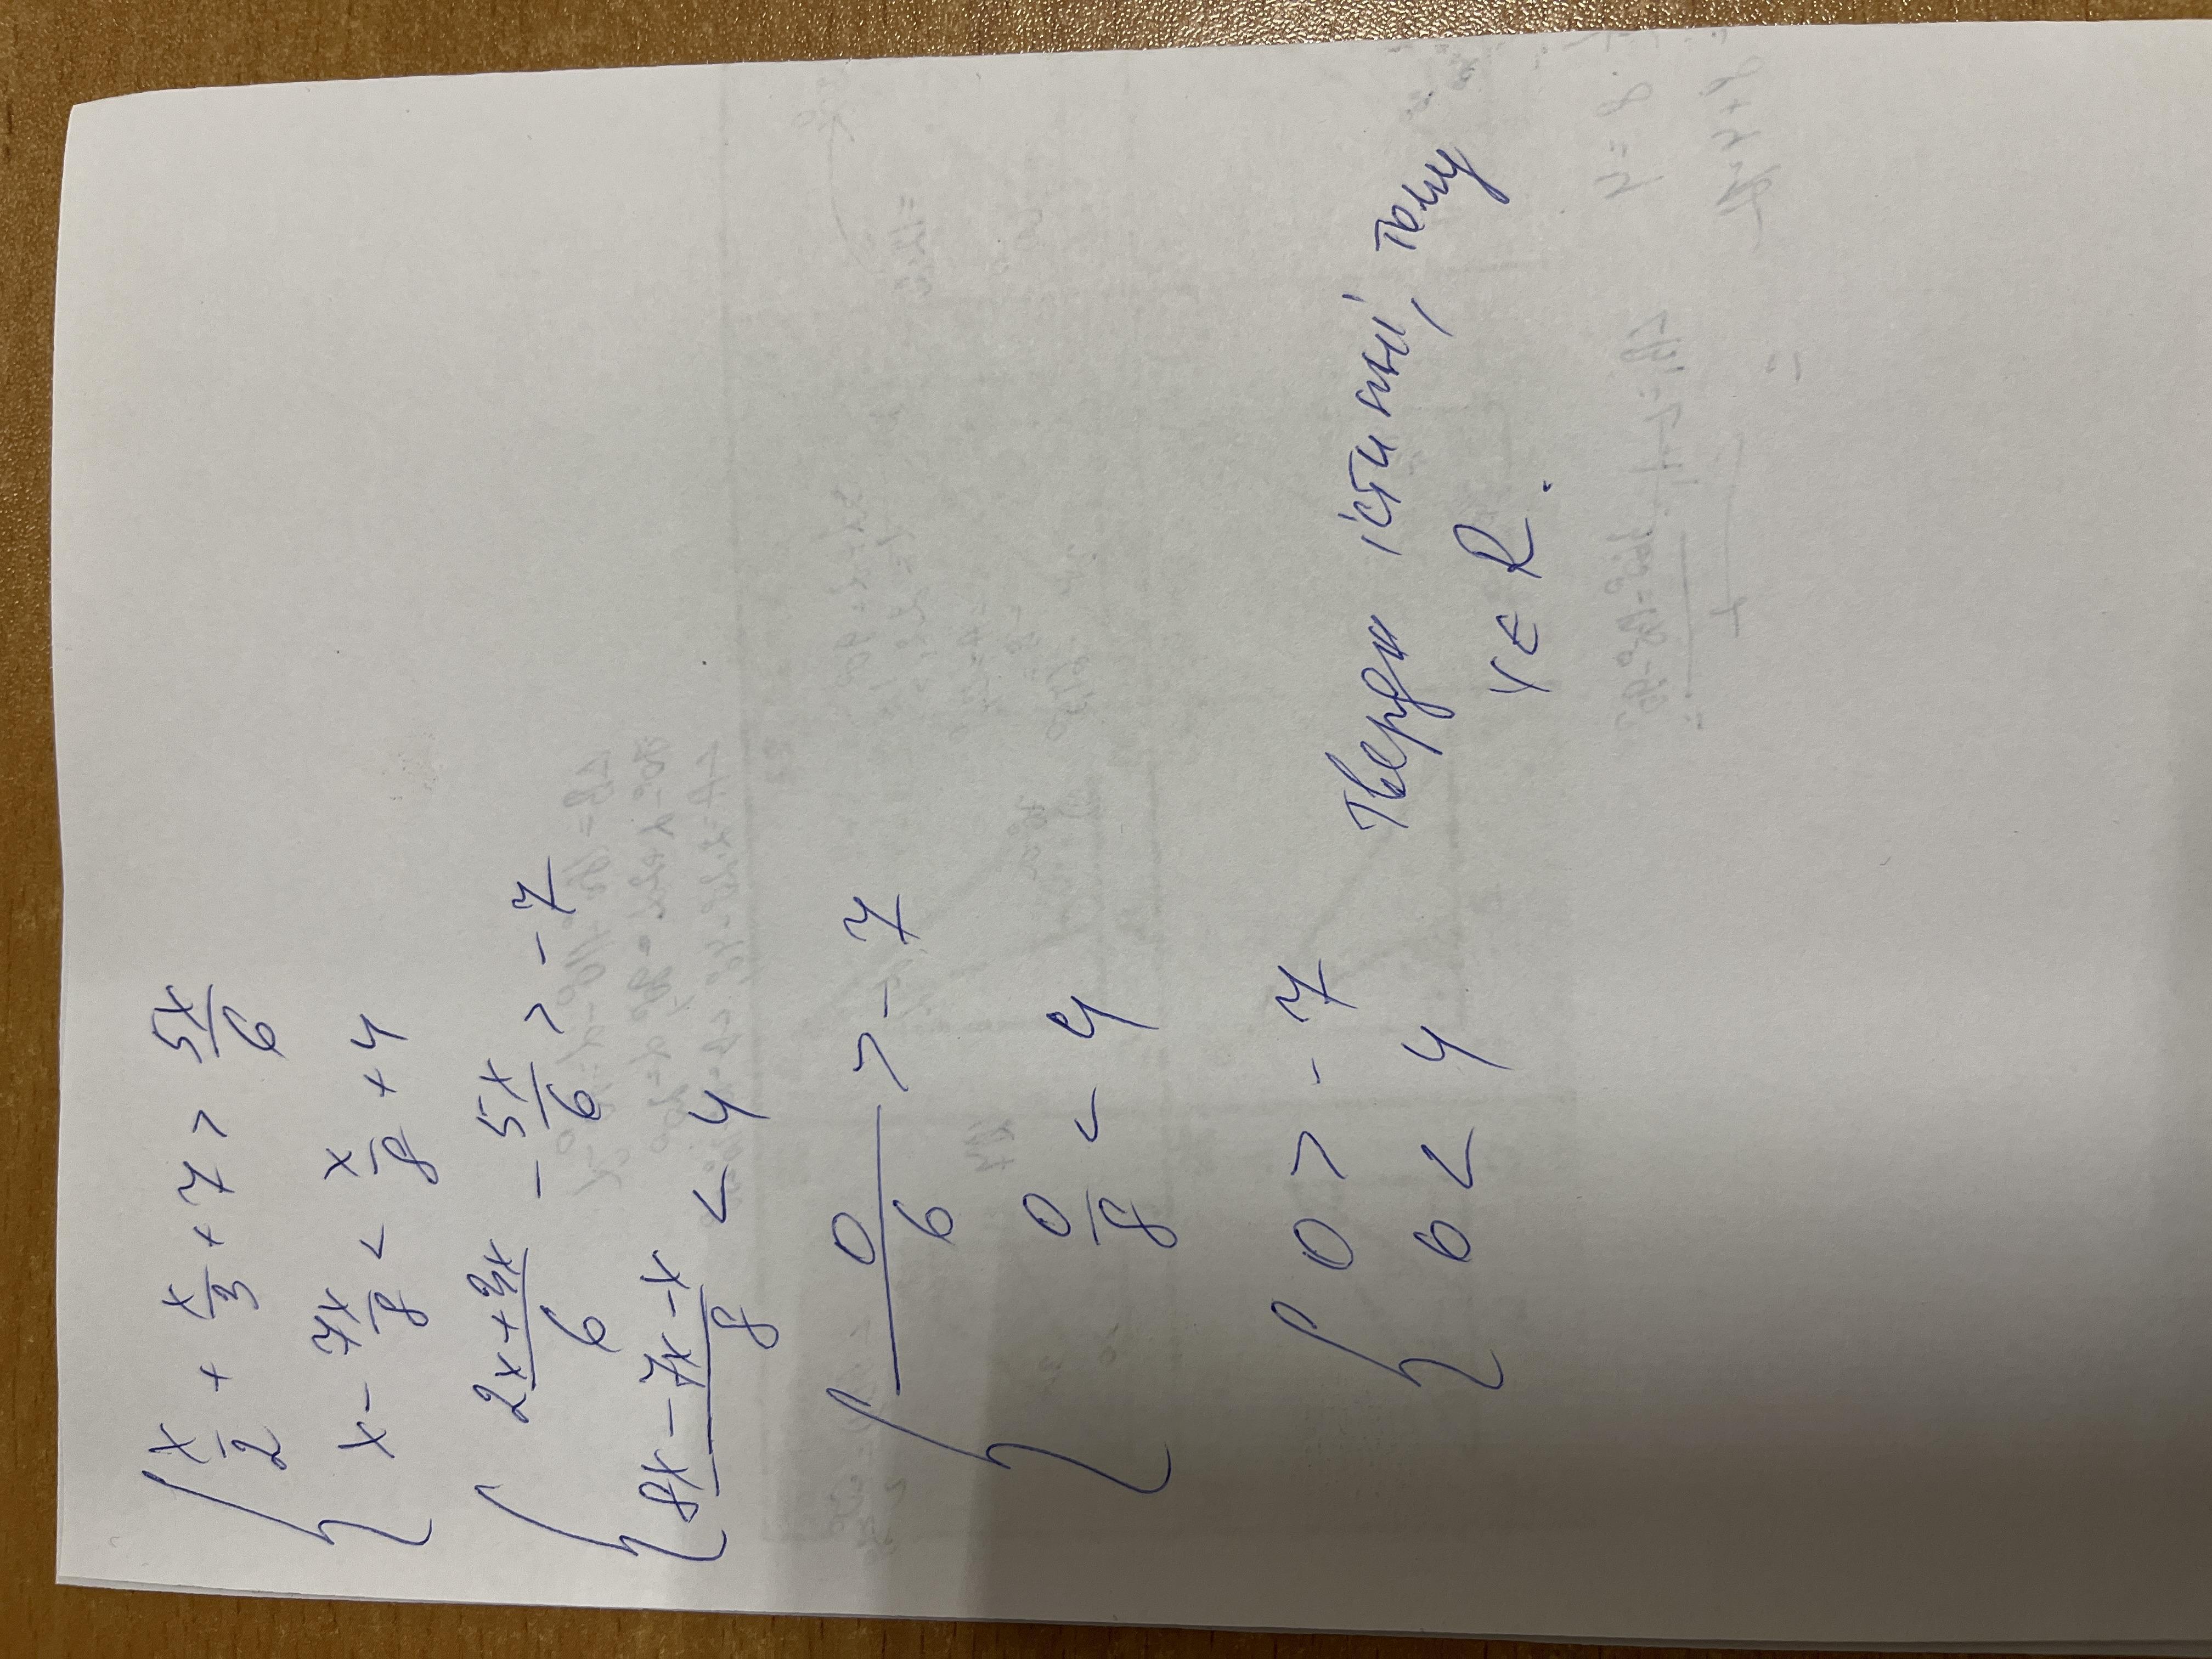 { x/2 + x/3 + 7 > 5x/6
x - 7x/8 < x/8 + 4
{ 2x + 3x/6 - 5x/6 > -7
8x - 7x - x/8 < 4
{ 0/6 > -7
0/8 < 4
{ 0 > -7
0 < 4
Тверди істинні, тому
x ∈ R.